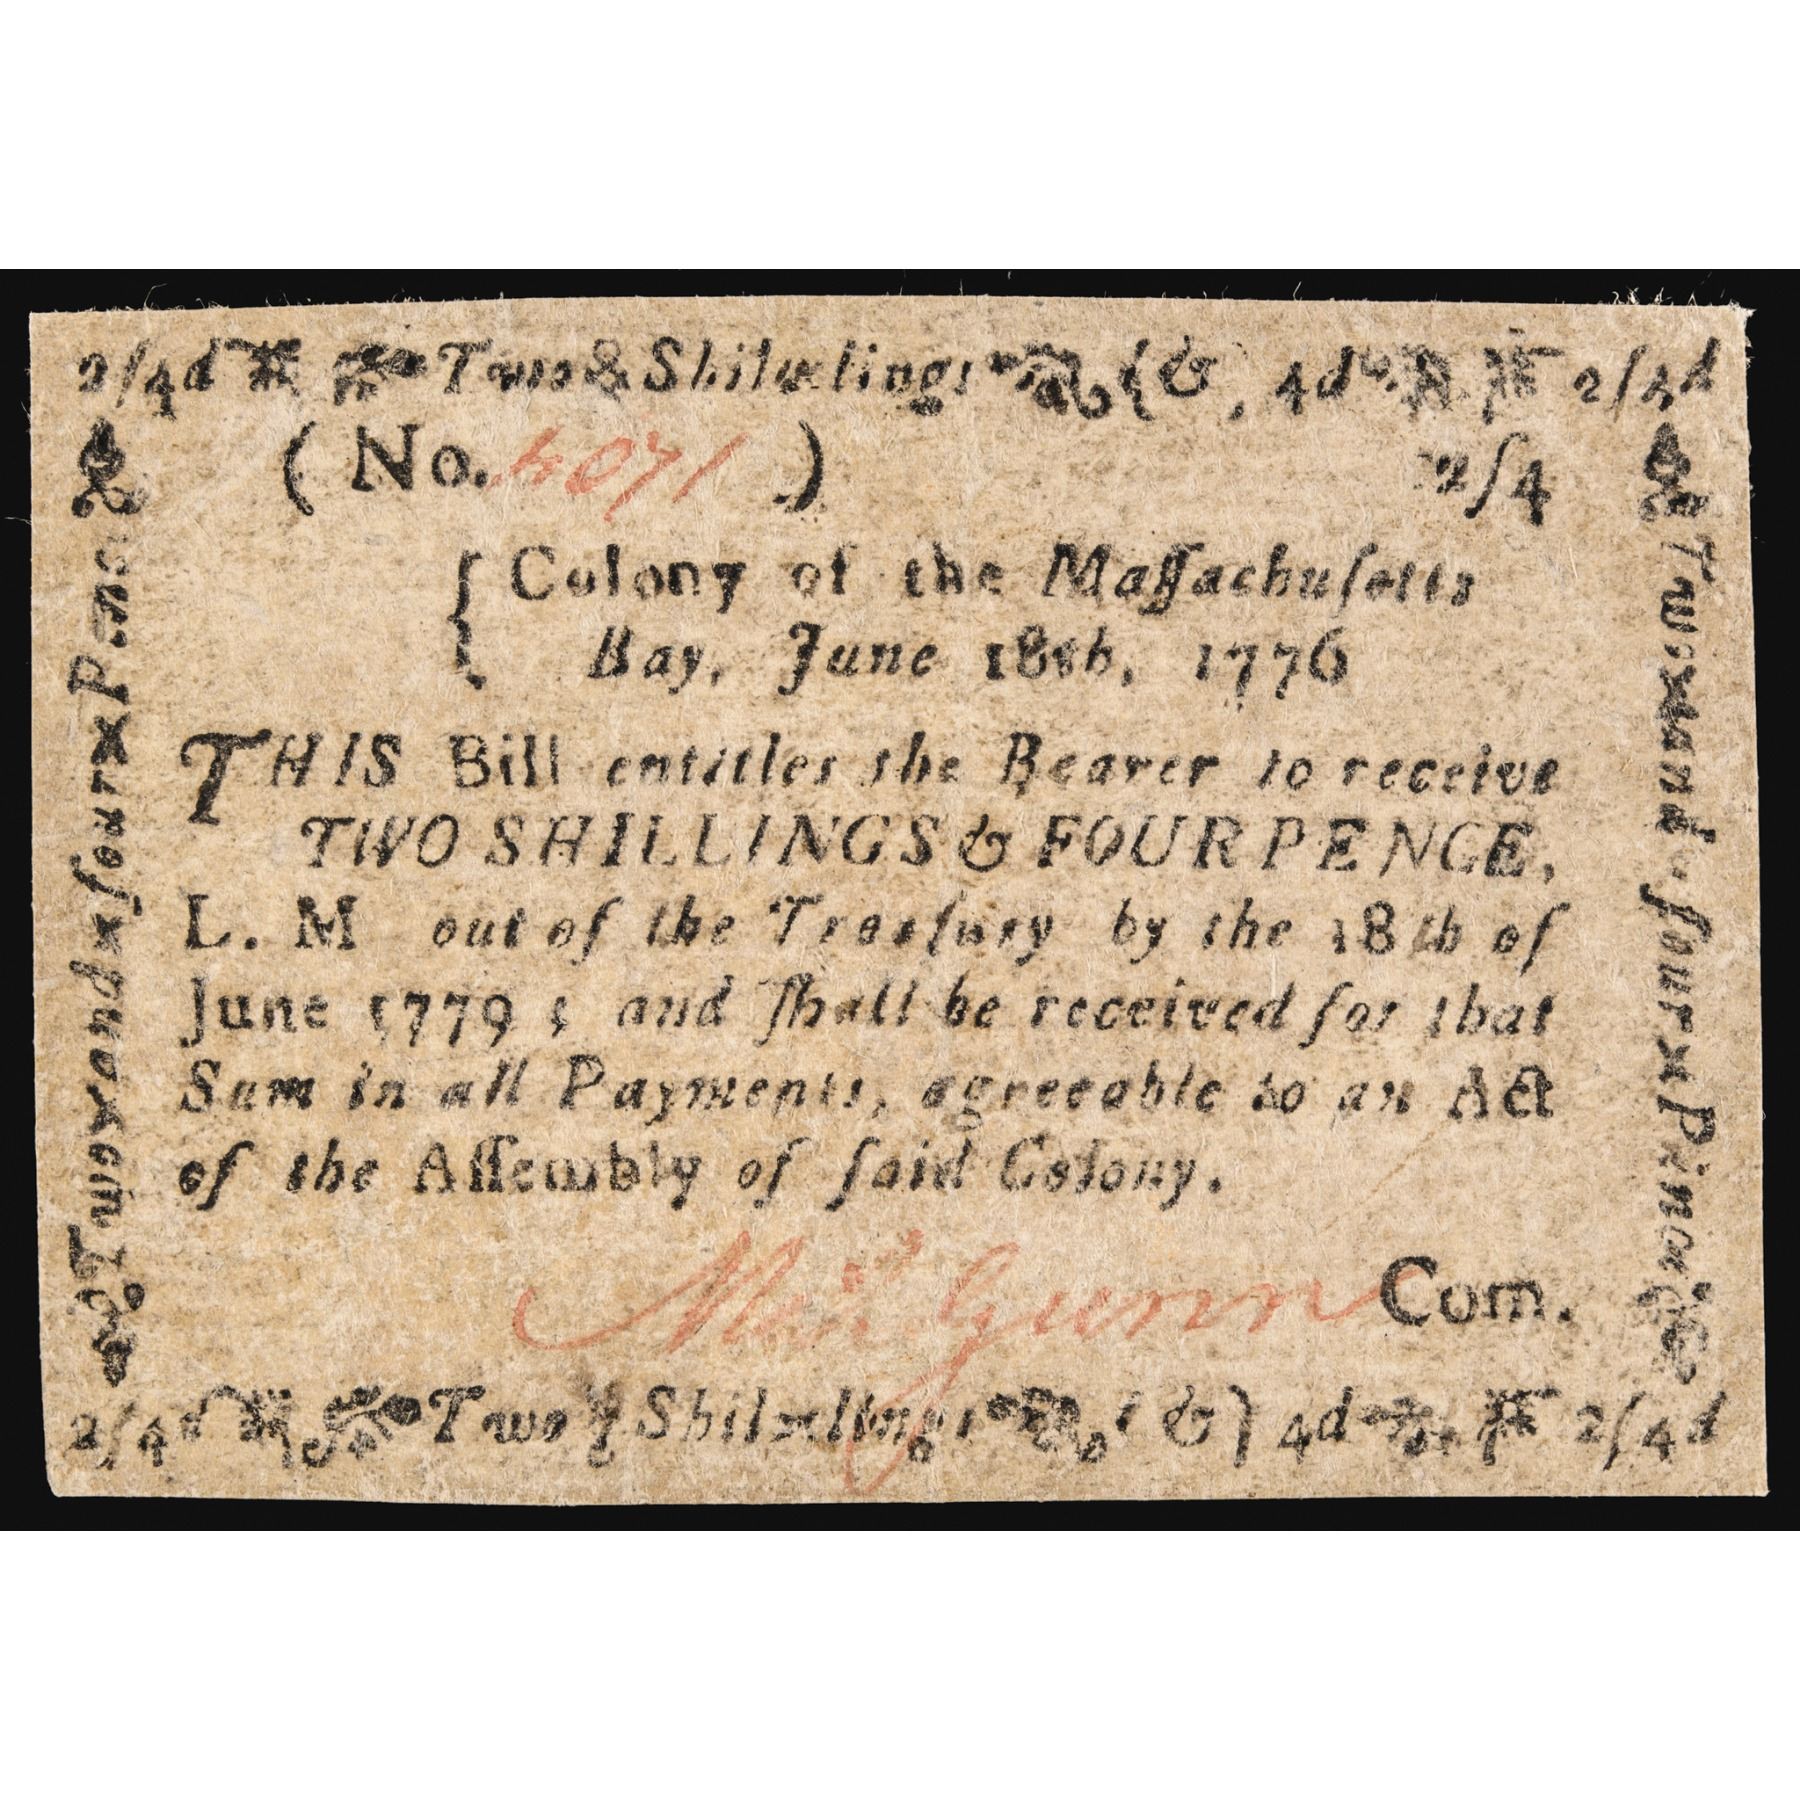 2/4d Two & Shilxlings {&, 4d 2/4d
(No. 4071) 2/4
{Colony of the Maſſachuſetts
Bay, June 18th, 1776
THIS Bill entitles the Bearer to receive
TWO SHILLINGS & FOUR PENCE,
L. M out of the Treaſury by the 18th of
June 1779; and ſhall be received for that
Sum in all Payments, agreeable to an Act
of the Aſſembly of ſaid Colony.
Gunn Com.
2/4d Two Shilxlings &) 4d 2/4d
Twoxandxfourx
Twoxand-fourx